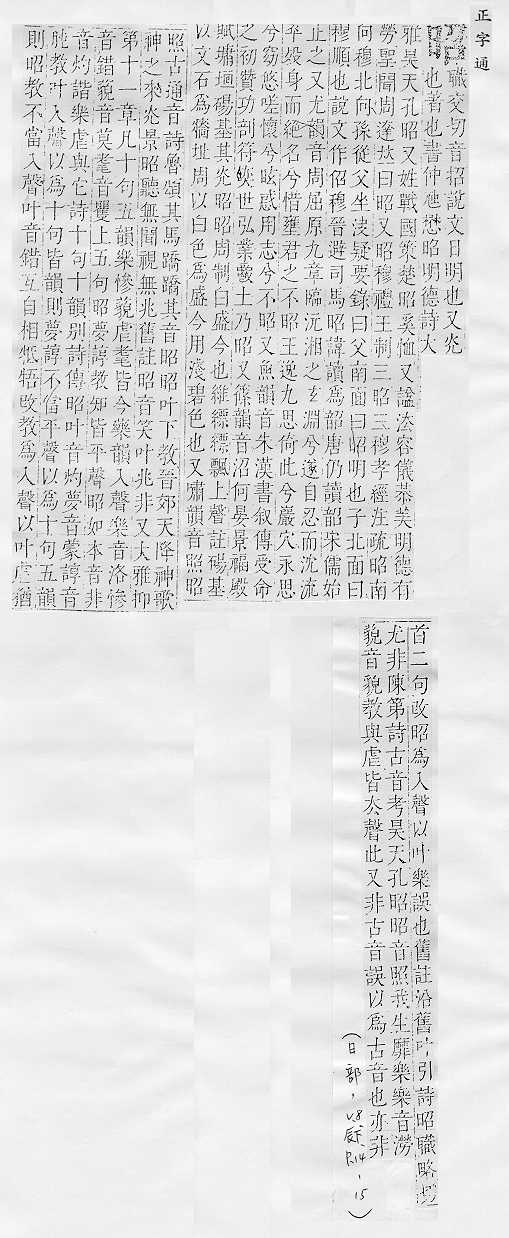 正字通
昭職交切音招說文日明也又光
也著也書仲虺懋昭明德詩大
雅昊天孔昭又姓戰國策楚昭奚恤又諡法容儀恭美明德有
勞聖聞周達𠀤曰昭又昭穆禮王制三昭三穆孝經注疏昭南
向穆北向孫從父坐決疑要錄曰父南面曰昭明也子北面曰
穆順也說文作佋穆晉避司馬昭諱讀爲韶唐仍讀韶宋儒始
止之又尤韻音周屈原九章臨沅湘之玄淵兮遂自忍而沈流
卒歿身而絶名兮惜壅君之不昭王逸九思倚此兮巖穴永思
兮窈悠嗟懷兮眩惑用志兮不昭又魚韻音朱漢書叙傳受命
之初贊功剖符奕世弘業爵土乃昭又篠韻音沼何晏景福殿
賦墉垣碭基其光昭昭周制白盛今也維縹縹飄上聲註碭基
以文石爲牆址周以白色爲盛今用淺碧色也又嘯韻音照昭
照古通音詩魯頌其馬蹻蹻其音昭昭叶下教晉郊天降神歌
神之來光景昭聽無聞視無兆舊註昭音笑叶兆非又大雅抑
第十一章凡十句五韻樂慘藐虐耄皆今藥韻入聲樂音洛慘
音錯藐音莫耄音上五句昭夢諄教知皆平聲昭如本音非
音灼諧樂虐與它詩十句十韻别詩傳昭叶音灼夢音蒙諄音
肫教叶入聲以爲十句皆韻則夢諄不當平聲以爲十句五韻
則昭教不當入聲叶音錯互自相牴牾改教爲入聲以叶虐猶
首二句改昭爲入聲以叶樂誤也舊註沿舊叶引詩昭職略切
尤非陳第詩古音考昊天孔昭昭音照我生靡樂樂音澇
藐音貌教與虐皆去聲此又非古音誤以爲古音也亦非
(日部，V8辰P.14，15)